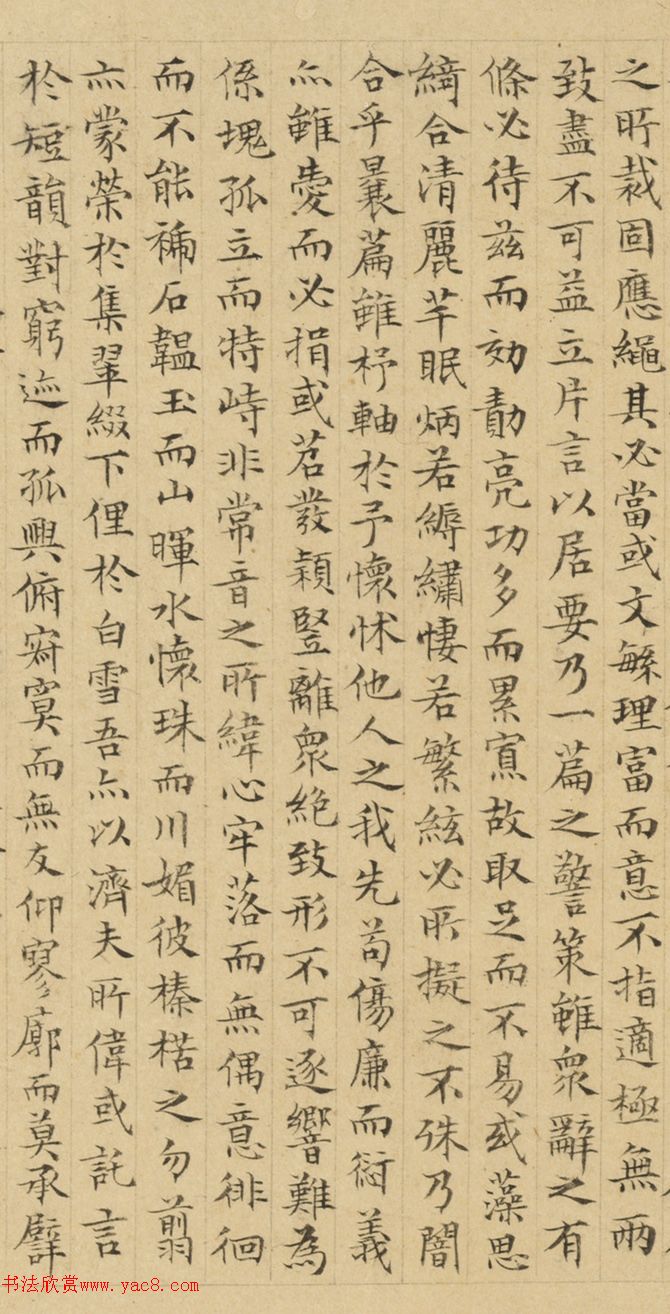 之所裁固應繩其必當或文緐理富而意不指適極無兩
致盡不可益立片言以居要乃一篇之警策雖眾辭之有
條必待茲而効勣亮功多而累寡故取足而不易或藻思
綺合清麗芊眠炳若縟繡悽若繁絃必所擬之不殊乃闇
合乎曩篇雖杼軸於予懷怵他人之我先苟傷廉而愆義
亦雖愛而必捐或苕發穎豎離眾絕致形不可逐響難為
係塊孤立而特峙非常音之所緯心牢落而無偶意徘徊
而不能石韞玉而山暉水懷珠而川媚彼榛楛之勿翦
亦蒙榮於集翠綴下俚於白雪吾亦以濟夫所偉或託言
於短韻對窮迹而孤興俯寂寞而無友仰寥廓而莫承譬
书法欣赏www.yac8.com